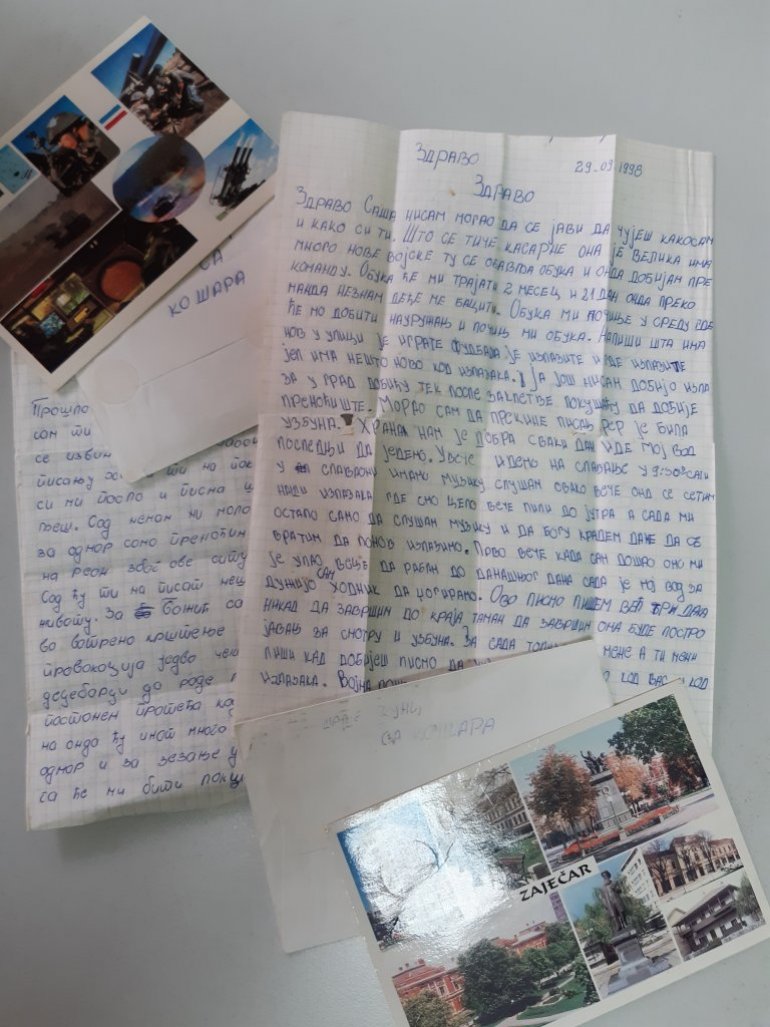 ЗДРАВО
29.09 1998
ЗДРАВО
ЗДРАВО САША НИСАМ МОГАО ДА СЕ ЈАВИ ДА ЧУЈЕШ КАКОСАМ
И КАКО СИ ТИ. ШТО СЕ ТИЧЕ КАСАРНЕ ОНА ЈЕ ВЕЛИКА ИМА
МНОГО НОВЕ ВОЈСКЕ ТУ СЕ ОБАВЉА ОБУКА И ОНДА ДОБИЈАМ ПРЕ
КОМАНДУ. ОБУКА ЋЕ МИ ТРАЈАТИ 2 МЕСЕЦ И 21 ДАН ОНДА ПРЕКО
МАНДА НЕЗНАМ ДЕЂЕ МЕ БАЦИТИ. ОБУКА МИ ПОЧИЊЕ У СРЕДУ ГДЕ
ЋЕ МО ДОБИТИ НАУРУЖАЊ И ПОЧИЊ МИ ОБУКА. НАПИШИ ШТА ИМА
НОВ У УЛИЦИ ЈЕ ИГРАТЕ ФУДБАЛА ЈЕ ИЗЛАЗИТЕ И ГДЕ ИЗЛАЗИТЕ
ЈЕЛ ИМА НЕШТО НОВО КОД ИЗЛАЗАКА. ЈА ЈОШ НИСАМ ДОБИЈО ИЗЛА
ЗА У ГРАД ДОБИЋУ ТЕК ПОСЛЕ ЗАКЛЕТВЕ ПОКУШАЋУ ДА ДОБИЈЕ
ПРЕНОЋИШТЕ. МОРАО САМ ДА ПРЕКИНЕ ПИСАЊ ЈЕР ЈЕ БИЛА
УЗБУНА. ХРАНА НАМ ЈЕ ДОБРА СВАКИ ДАН ИДЕ МОЈ ВОД
ПОСЛЕДЊИ ДА ЈЕДЕМО. УВЕЧЕ ИДЕМО НА СПАВАЊЕ У 9:30
У СПАВАОНИ ИМАМО МУЗИКУ СЛУШАМ СВАКО ВЕЧЕ ОНД СЕ СЕТИМ
ИЗЛАЗАКА ГДЕ СМО ЦЕЛО ВЕЧЕ ПИЛИ ДО ЈУТРА А САДА МИ
ОСТАЛО САМО ДА СЛУШАМ МУЗИКУ И ДА БОГУ КРАДЕМ ДАНЕ ДА СЕ
ВРАТИМ ДА ПОНОВ ИЗЛАЗИМО. ПРВО ВЕЧЕ КАДА САМ ДОШАО ОНО МИ
ЈЕ УПАО ДА РАБАМ ДО ДАНАШЊОГ ДАНА САДА ЈЕ МОЈ ВОД ЗА
ДУЖИЈО САМ ХОДНИК ДА ЏОГИРАМО. ОВО ПИСМО ПИШЕМ ВЕЋ ТРИ ДАНА
НИКАД ДА ЗАВРШИМ ДО КРАЈА ТАМАН ДА ЗАВРШИМ ОНА БУДЕ ПОСТРО
ЈАВАЊ ЗА СМОТРУ И УЗБУНА. ЗА САДА МЕНЕ А ТИ МЕНИ
ПИШИ КАД ДОБИЈЕШ ПИСМО ДА КОД ВАС КОД
ИЗЛАЗАКА. ВОЈНА
СА
КОШАРА
Прошло
сам ти
се извин
писању ти на
си ми посло и писма
Сад немам ни
за одмор само преноћи
на реон због ове
Сад ћу ти на писат
животу. За Божић са
во ватрено крштење
провокација једво
децебарци до
на онда ћу имат много
одмор и за зезање у
са ће ми бити
СА КОШАРА
ZAJEČAR